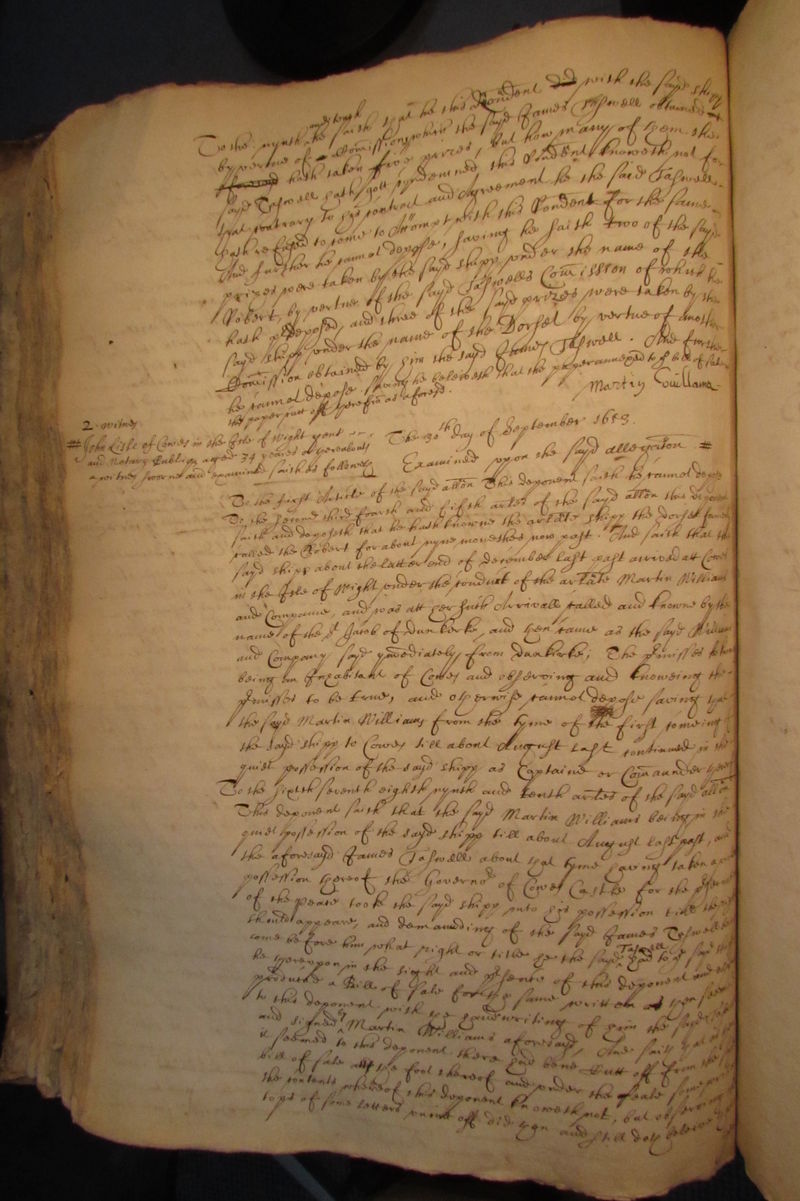 To the nynth hee saith that he this Rendent did with the sayd shipp
by vertue of a Comission which the sayd James Tashwell obtained
hath taken five prizes, but how many of them the
sayd Tashwell hath gott condemned this Rendent knoweth not for
that contrary to his contract and Agreement he the said Tashwell
hath refused to come to Accompt with this Rendent for the same
And further he cannot depose, saving he saith two of the sayd
prizes were taken by the sayd shipp under the name of the
Robert, by vertue of the sayd Tashwells Comission of which he
hath predeposed, and three of the sayd prizes were taken by the
sayd shipp under the name of the Dorset by vertue of another
Comission obtained by him the sayd James Tashwell. And further
he cannot depose. saving he beleeveth that the paper annexed to the bill of sale
the paper cutt off therefro as aforesd.
Martin Guillame
2. witnes
John Lisle of Cowes in the Isle of Wight gent
and Notary Publiq aged 34 yeares or thereabouts
a witnes sworne and examined saith as followeth
The 30th day of September 1653.
Examined upon the sayd allegation.
To the first Article of the sayd allon This deponent saith he cannot depose
To the second third fourth and fifth arles of the sayd allon this deponent
saith and deposeth that he hath knowne the arlate shipp the dorset
called the Robert for about nyne monethes now past. And saith that the
sayd shipp about the latter end of december last past arrived att Cowes
in the Isle of Wight under the conduct of the arlate Martin Williams
and Companie, and was att her such Arrivall called and knowne by the
name of the St Jacob of dunkirke, and then came as the sayd Williams
and Company sayd ymediately from dunkirke; The premisses
being an Inhabitant of Cowes and observing and knoweing the
premisses to be true, and otherwise cannot depose saving
the sayd Martin Williams from the tyme of the first comeing of
the sayd shipp to Cowes till about August last continued in the
quiet possession of the sayd shipp as Captaine or Comander thereof
To the sixth seventh eighth nynth and tenth arles of the sayd allon
This deponent saith that the sayd Martin Williams being in the
quiet possession of the sayd shipp till about August last past, and
the aforesayd James Tashwell about that tyme having taken
possession thereof the Governor of Cowes Castle for the
of the peace took the sayd shipp into his possession till the
should appeare, and demaunding of the sayd James Tashwell
come before him what right or title he the sayd Tashwell had to the sayd shipp
he thereupon in the sight and presence of this deponent
produced a Bill of sale for the same written as
to this deponent with the handwriting of him the sayd
and signed by Martin Williams aforesayd, And saith that
it seemed to this deponent there had bene cutt off from the
bill of sale att the foot thereof and under the seale some
the contents whereof this deponent knoweth not, but observing
topps of some letters cutt off did then and still doth beleeve